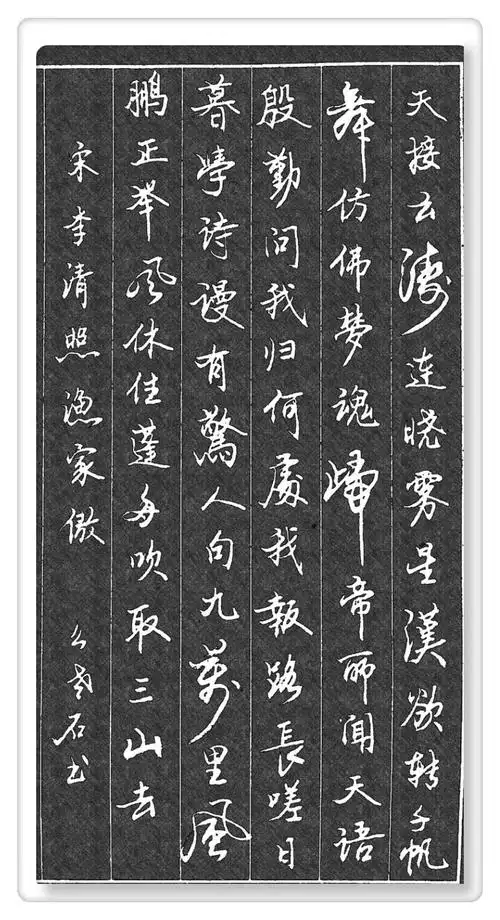 天接云涛连晓雾星漢欲转千帆
舞仿佛梦魂歸帝所闻天语
殷勤问我归何處我報路長嗟日
暮學诗谩有驚人句九萬里風
鹏正举风休住蓬舟吹取三山去
宋李清照渔家傲 石书